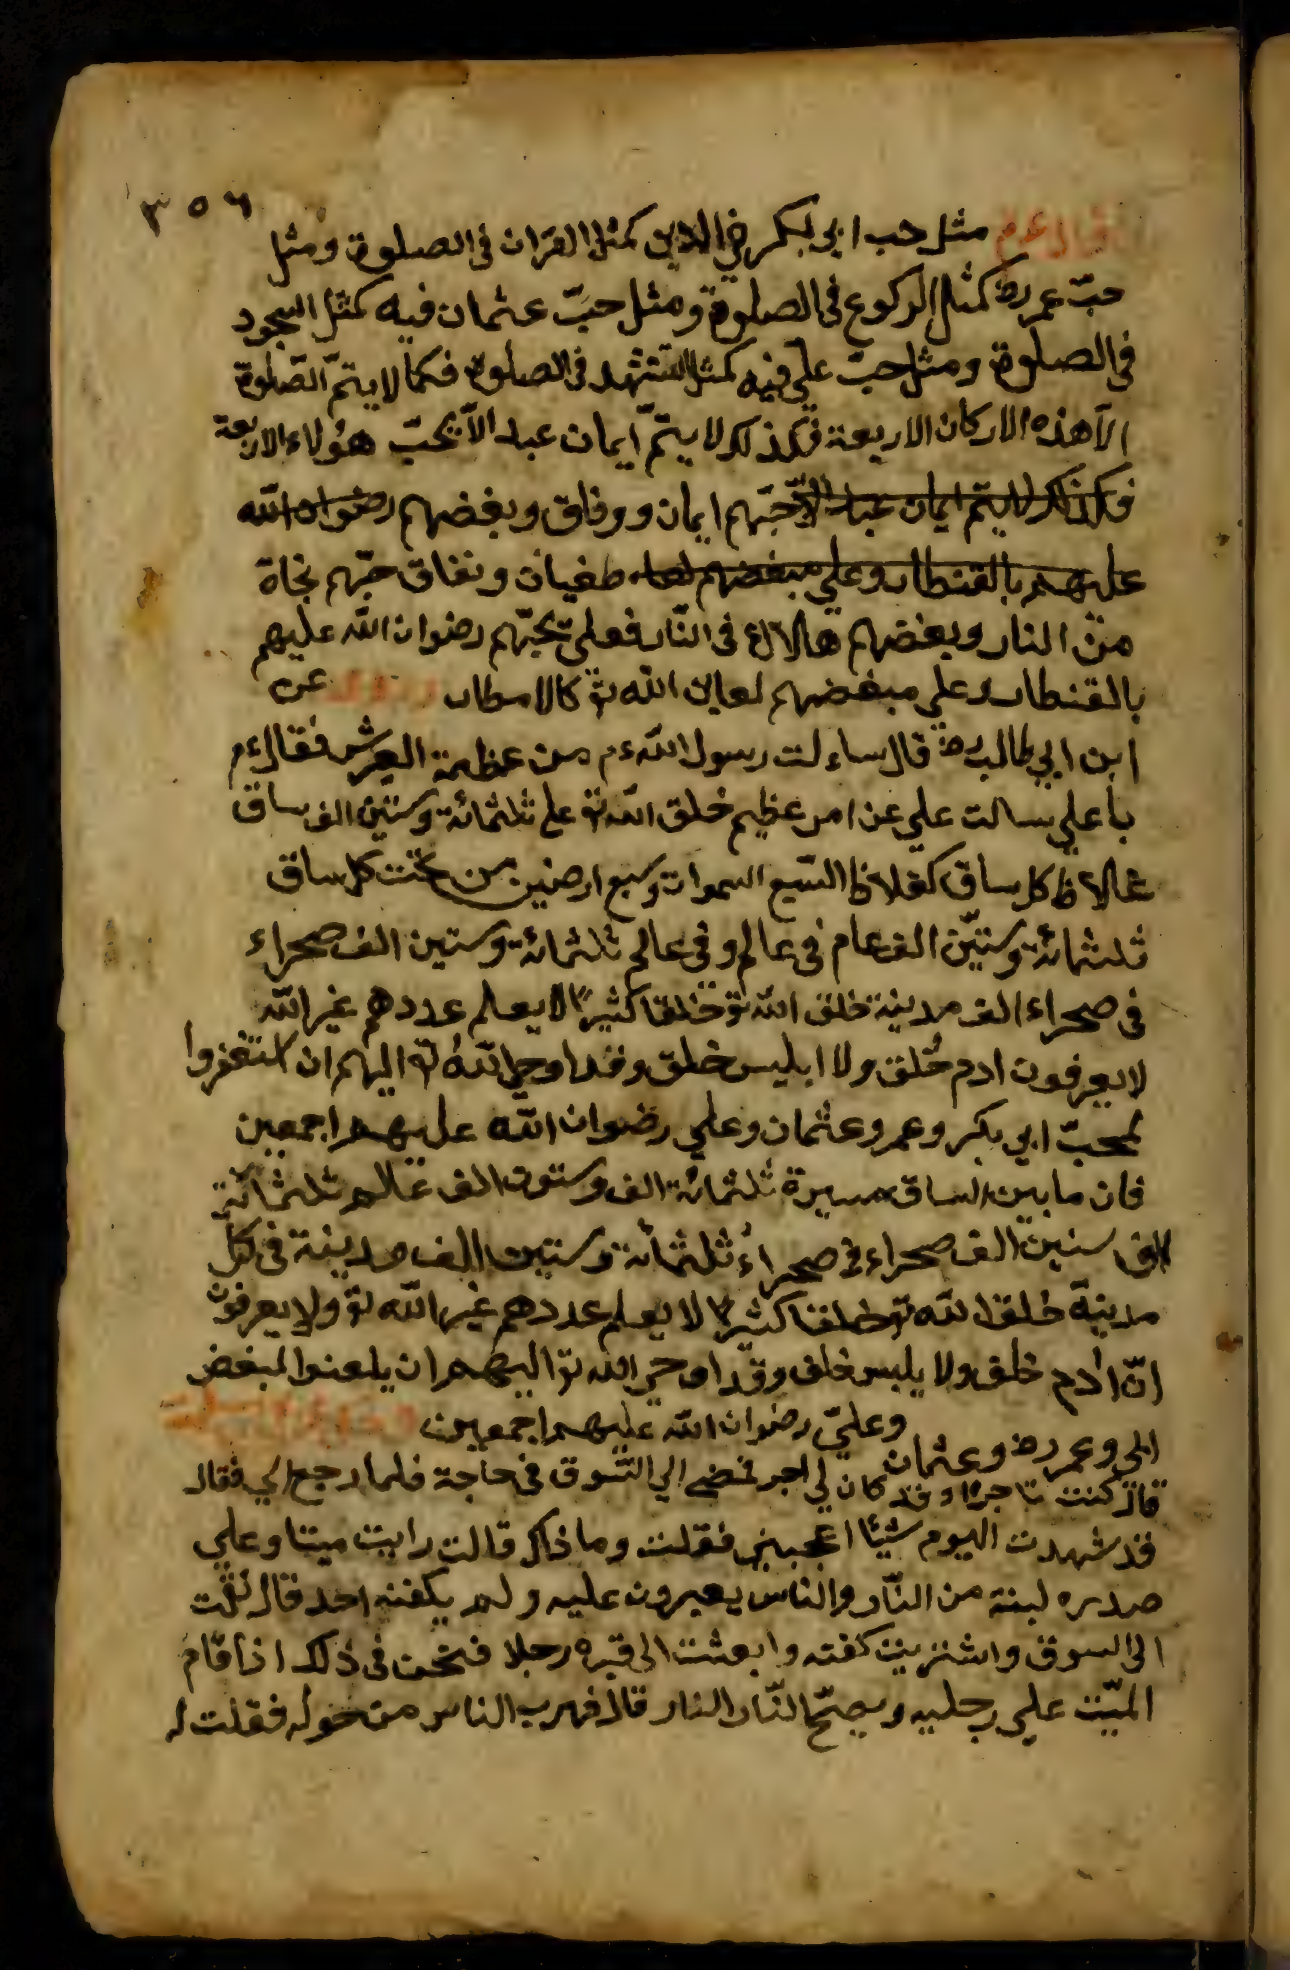 ٣٥٦
قال عم مثل حب ابي بكر في الدين كمثل القران في الصلوة ومثل
حبّ عمر رض كمثل الركوع في الصلوة ومثل حبّ عثمان فيه كمثل السجود
في الصلوة ومثل حبّ علي فيه كمثل التشهد في الصلوة فكما لا يتمّ الصّلوة
الّا هذه الاركان الاربعة فكذلك لا يتمّ ايمان عبد الّا بحبّ هؤلاء الاربعة
فكذلك لا يتم ايمان عبد الا حبّهم ايمان ووفاق وبغضهم رضوان الله
عليهم بالقنطار وعلي مبغضهم لعا طغيان ونفاق حبّهم نجاة
من النار وبغضهم هلاك في النّار فعلى محبّهم رضوان الله عليهم
بالقنطار وعلي مبغضهم لعاين الله تع كالامطار عن
ابن ابي طالب رض قال ساءلت رسول الله عم من عظمة العرش فقال عم
يا علي سالت علي عن امر عظيم خلق الله تع علي ثلثمائة وستين الف ساق
غلاظ كل ساق كغلاظ السّبع السموات وسبع ارضين من تحت كل ساق
ثلثمائة وستّين الف عام في عالم وفي عالم ثلثمائة وستين الف صحراء
في صحراء الف مدينة خلق الله تع خلقا كثيرًا لا يعلم عددهم غير الله
لا يعرفون ادم خُلق ولا ابليس خلق وقد اوحي الله تع اليهم ان استغفروا
لمحبّ ابي بكر وعمر وعثمان وعلي رضوان الله عليهم اجمعين
فان ما بين الساق مسيرة ثلثمائة الف وستون الف عالم ثلثمائة
الف ستين الف صحراء في صحراء ثلثمائة وستين الف مدينة في كلّ
مدينة خلق الله تع خلقا كثيرا لا يعلم عددهم غير الله تع ولا يعرفون
انّ ادم خلق ولا يلبس خلق وقد اوحي الله تع اليهم ان يلعنوا لمبغض
ابي وعمر رض وعثمان وعليّ رضوان الله عليهم اجمعين
قال كنت تاجرًا وقد كان لي اجر فمضي الي السّوق في حاجة فلما رجع الي فقال
قد شهدت اليوم شيئا اعجبني فقلت وما ذاك قالت رايت ميتا وعلي
صدره لبنة من النّار والناس يعبرون عليه ولم يكفنه احد قال فقمت
الي السوق واشتريت كفنه وابعثت الي قبره رجلا فنحن في ذلك اذا قام
الميّت علي رجليه ويصيح النّار النار قال فهرب الناس من حوله فقلت له